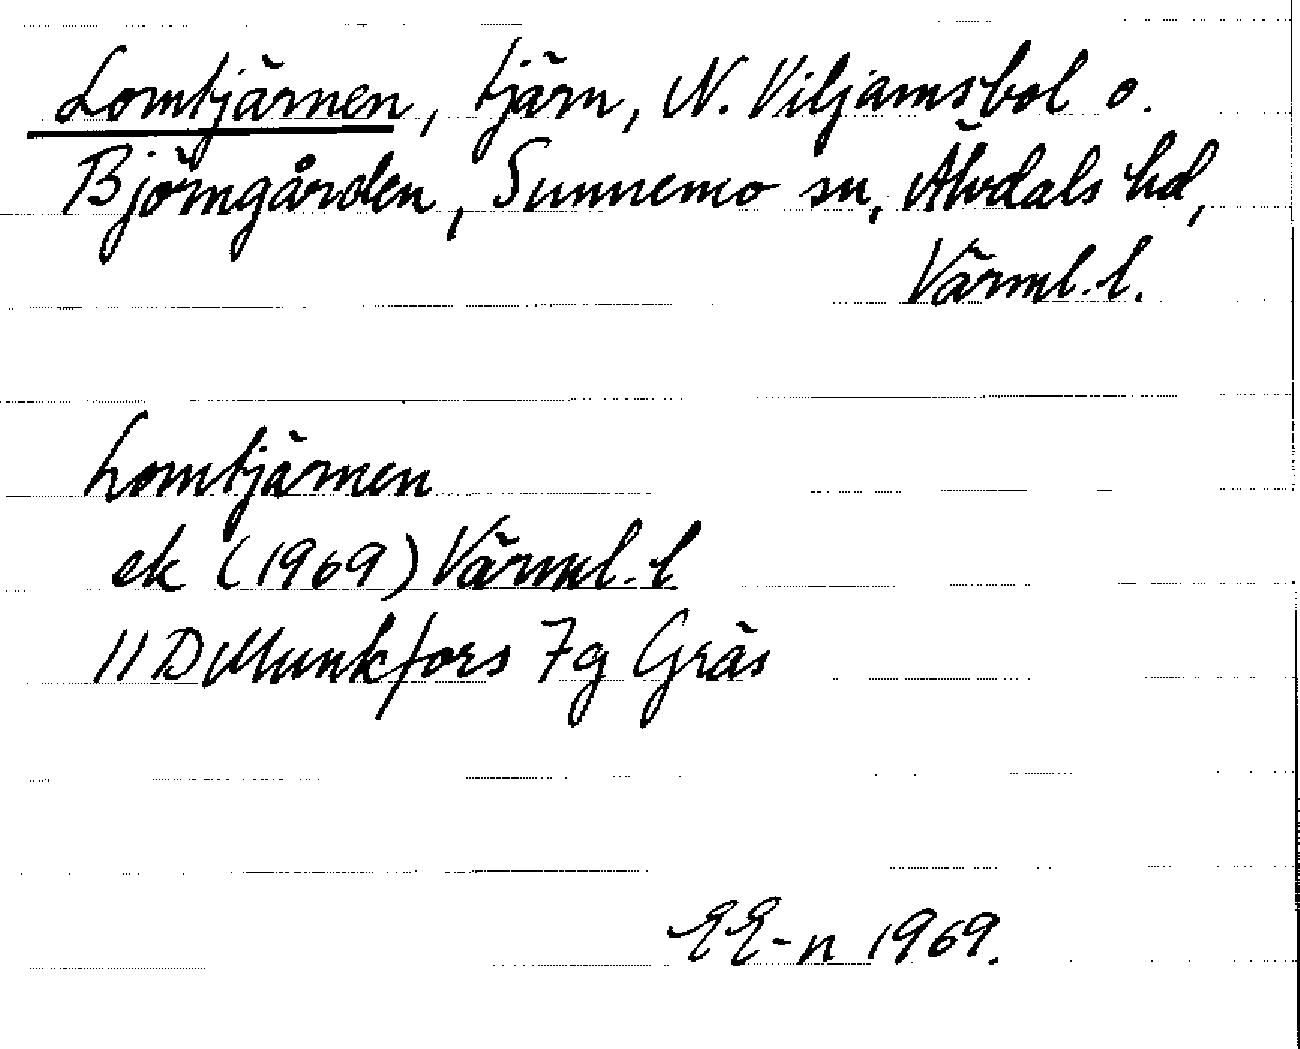 Lomtjärnen, tjärn, N. Viljamsbol o.
Björngården, Sunnemo sn, Älvdals hd,
Värml. l.
Lomtjärnen
ek (1969) Värml. l
11 D Munkfors 7g Gräs
EE-n 1969.